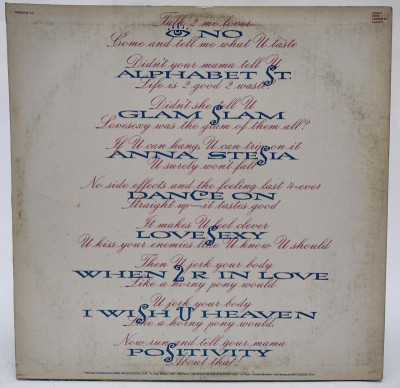 Talk 2 me lover
NO
Come and tell me what U taste
Didn't your mama tell U
ALPHABET ST.
Life is 2 good 2 waste
Didn't she tell U
GLAM SLAM
Lovesexy was the glam of them all?
If U can hang, U can trip on it
ANNA STESIA
U surely won't fall
No side effects and the feeling last 4-ever
DANCE ON
Straight up—it tastes good
It makes U feel clever
LOVESEXY
U kiss your enemies like U know U should
Then U jerk your body
WHEN 2 R IN LOVE
Like a horny pony would
U jerk your body
I WISH U HEAVEN
Like a horny pony would.
Now run and tell your mama
POSITIVITY
About that!